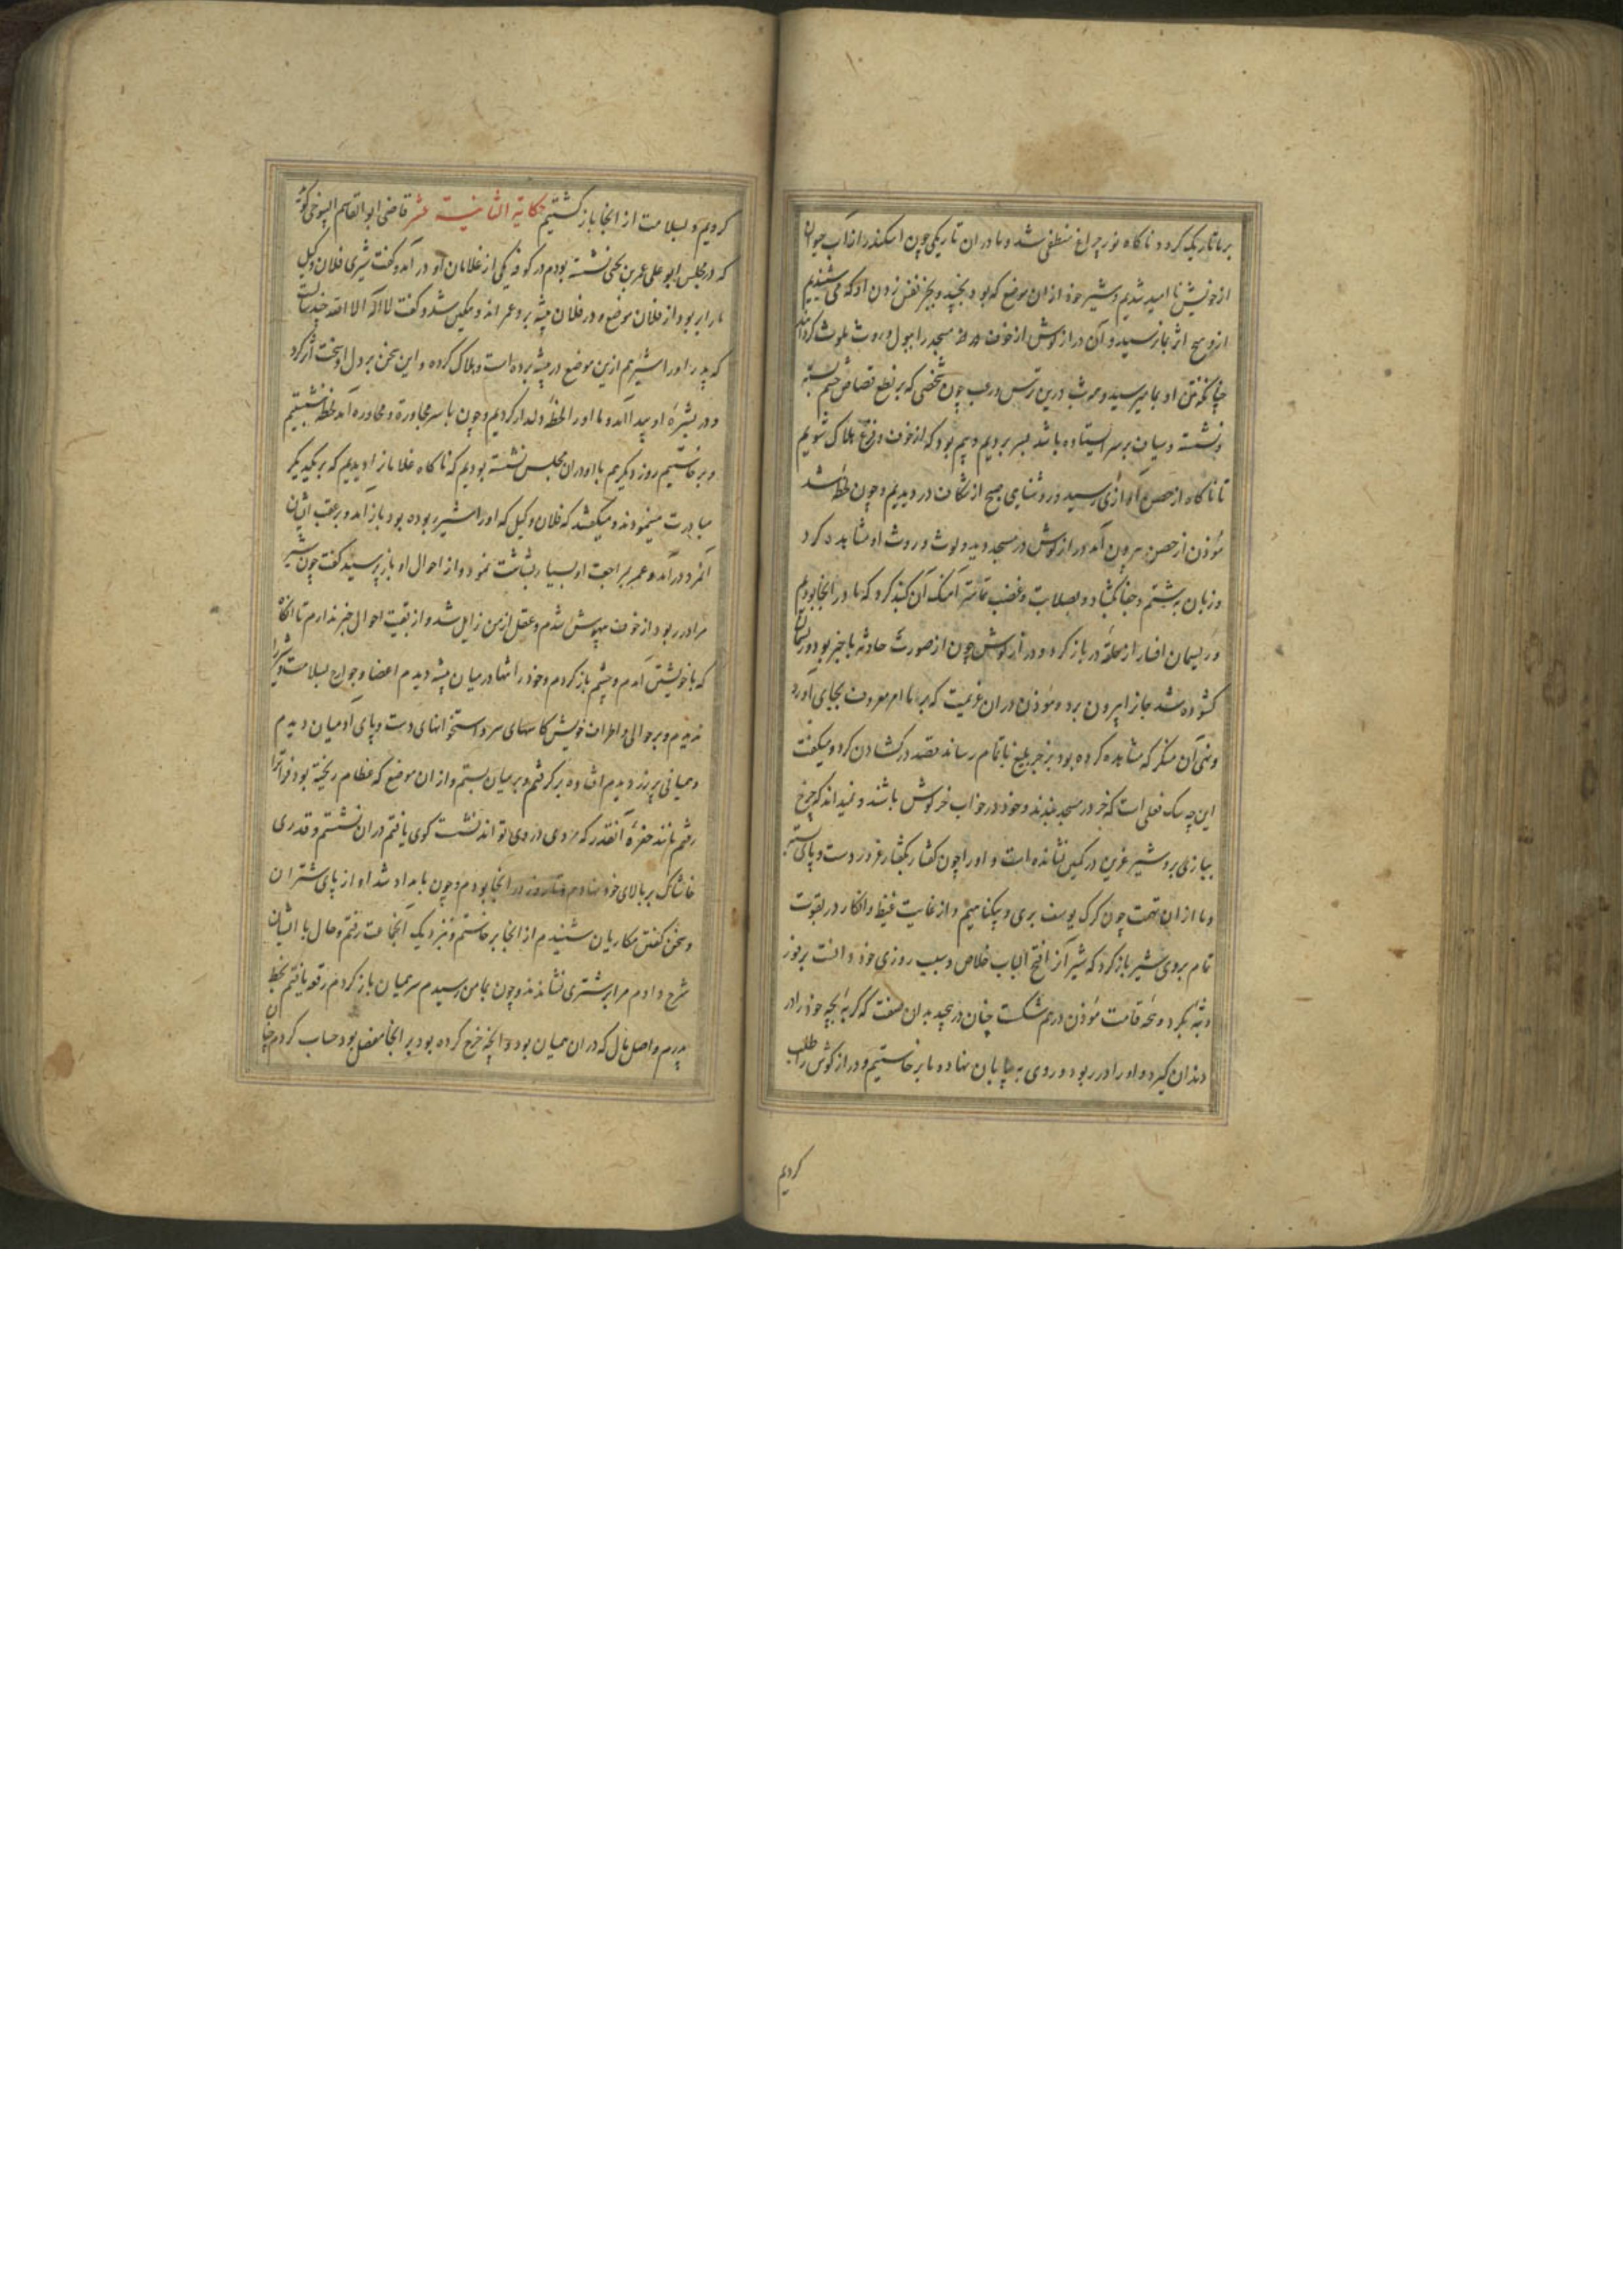 بر ما تاریک کردد ناکاه نور چراغ منطفی شد و ما در ان تاریکی چون اسکندر از اب حیوان
از خویش نا امید شدیم و شیر خود از ان موضع که بود نجنبید و بجز نفس زدن او که می شنیدیم
ازو هیچ اثر بما نرسید و آن دراز کوش از خوف مسجد را ببول و روث ملوث کردانید
او بما میرسید و درین ترس و رعب چون شخصی که بر نطع قصاص چشم بسته
و نشسته و سیاف بر سر ایستاده باشد بسر بردیم و بیم بود که از خوف و فزع هلاک شویم
تا ناکاه از حصن اوازی رسید و روشنایی صبح از شکاف در دیدیم و چون لحظه شد
مؤذن از حصن بیرون آمد دراز کوش در مسجد دید و لوث و روث او مشاهده کرد
و زبان بشتم و جفا بکشاد و بصلابت و غضب آهنک آن کنبد کرد که ما در انجا بودیم
و ریسمان افسار از حلقه در باز کرد و دراز کوش چون از صورت حادثه باخبر بود و ریسمان
کشوده شد جان را بیرون برد و مؤذن در ان عزیمت که برما امر معروف بجای آورد
و نهی آن منکر که مشاهده کرده بود بزجر بلیغ باتمام رساند قصد در کشادن کرد و میکفت
این چه سک فعلی است که خر در مسجد بندند و خود در خواب خرکوش باشند و نمیداند که چرخ
ببازی برو شیر عرین در کمین نشانده است و او را چون کفتار بکفتار غرور دست و پای بسته
و ما از ان تهمت چون کرک یوسف بری و بیکناهیم و از غایت غیظ و انکار در بقوت
تمام بروی شیر باز کرد که شیر آنرا افتح الباب خلاص و سبب روزی خود دانست بر فور
وثبه بکرد و نخه قامت مؤذن درهم شکست چنان درپیچید بدان صفت که کربه بچه خود را در
دندان کیرد و او را در ربود و روی به بیابان نهاد و ما برخاستیم و دراز کوش را طلب
کردیم
کردیم و بسلامت از انجا باز کشتیم حکایة الثانیة عشر قاضی ابو القاسم التنوخی کوید
که در مجلس ابو علی عمر بن یحیی نشسته بودم در کوفه یکی از غلامان او در آمد و کفت شیری فلان وکیل
ما را بربود از فلان موضع و در فلان بیشه برد عمر اندوهکین شد و کفت لا اله الا الله چند سالست
که پدر او را شیر هم ازین موضع در بیشه برده است و هلاک کرده و این سخن بر دل او سخت اثر کرد
و در بشره او پیدا آمد و ما او را لحظه دلداری کردیم و چون با سر مجاورة و محاوره آمد لحظه نشستیم
و برخاستیم روز دیکر هم با او در ان مجلس نشسته بودیم که ناکاه غلامانرا دیدیم که بر یکدیکر
مبادرت مینمودند و میکفتند که فلان وکیل که او را شیر ربوده بود باز آمد و بر عقب ایشان
آن مرد در آمد و عمر بمراجعت او بسیار بشاشت نمود و از احوال او باز پرسید کفت چون شیر
مرا در ربود از خوف بیهوش شدم و عقل از من زایل شد و از بقیت احوال خبر ندارم تا انکاه
که با خویشتن آمدم و چشم باز کردم و خود را تنها در میان بیشه دیدم اعضا و جوارح بسلامت و شیر را
ندیدم و بر حوالی و اطراف خویش کاسهای سر و استخوانهای دست و پای آدمیان دیدم
و همیانی پر زر دیدم افتاده برکرفتم و بر میان بستم و از ان موضع که عظام ریخته بود فراتر
رفتم مانند حفره آنقدر که مردی در وی تواند نشست کوی یافتم در ان نشستم و قدری
خاشاک بر بالای خود نهادم و تا روز در انجا بودم و چون بامداد شد اواز پای شتران
و سخن کفتن مکاریان شنیدم از انجا برخاستم و نزدیک آنجماعت رفتم و حال با ایشان
شرح دادم مرا بر شتری نشاندند و چون بمامن رسیدم سر همیان باز کردم رقعه یافتم بخط
پدرم و اصل مال که در ان همیان بود و آنچه خرج کرده بود بر انجا مفصل بود حساب کردم چنان